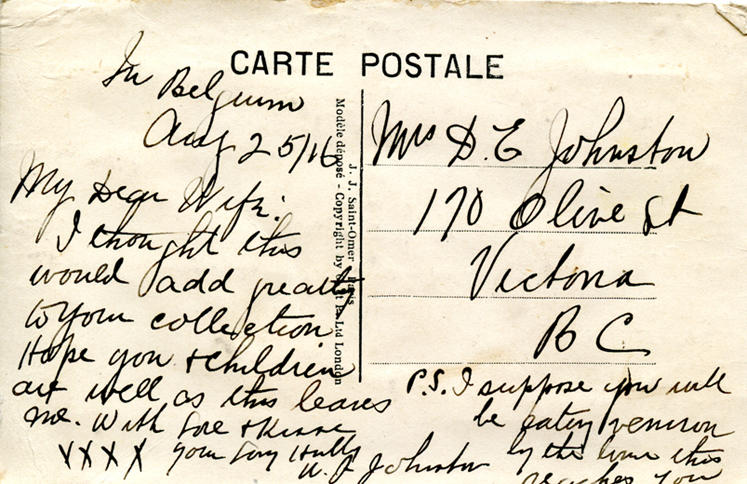 CARTE POSTALE
In Belgium
Aug 25/16
My Dear Wife:
I thought this
would add greatly
to your collection
Hope you & children
are well as this leaves
me. With love & kisses
XXXX your loving Hubby
Johnston
J. J. Saint-Omer Paris
Modèle déposé - Copyright by Ltd London
Mrs D. E Johnston
170 Olive St
Victoria
B C
P.S. I suppose you will
be eating venison
by the time this
reaches you